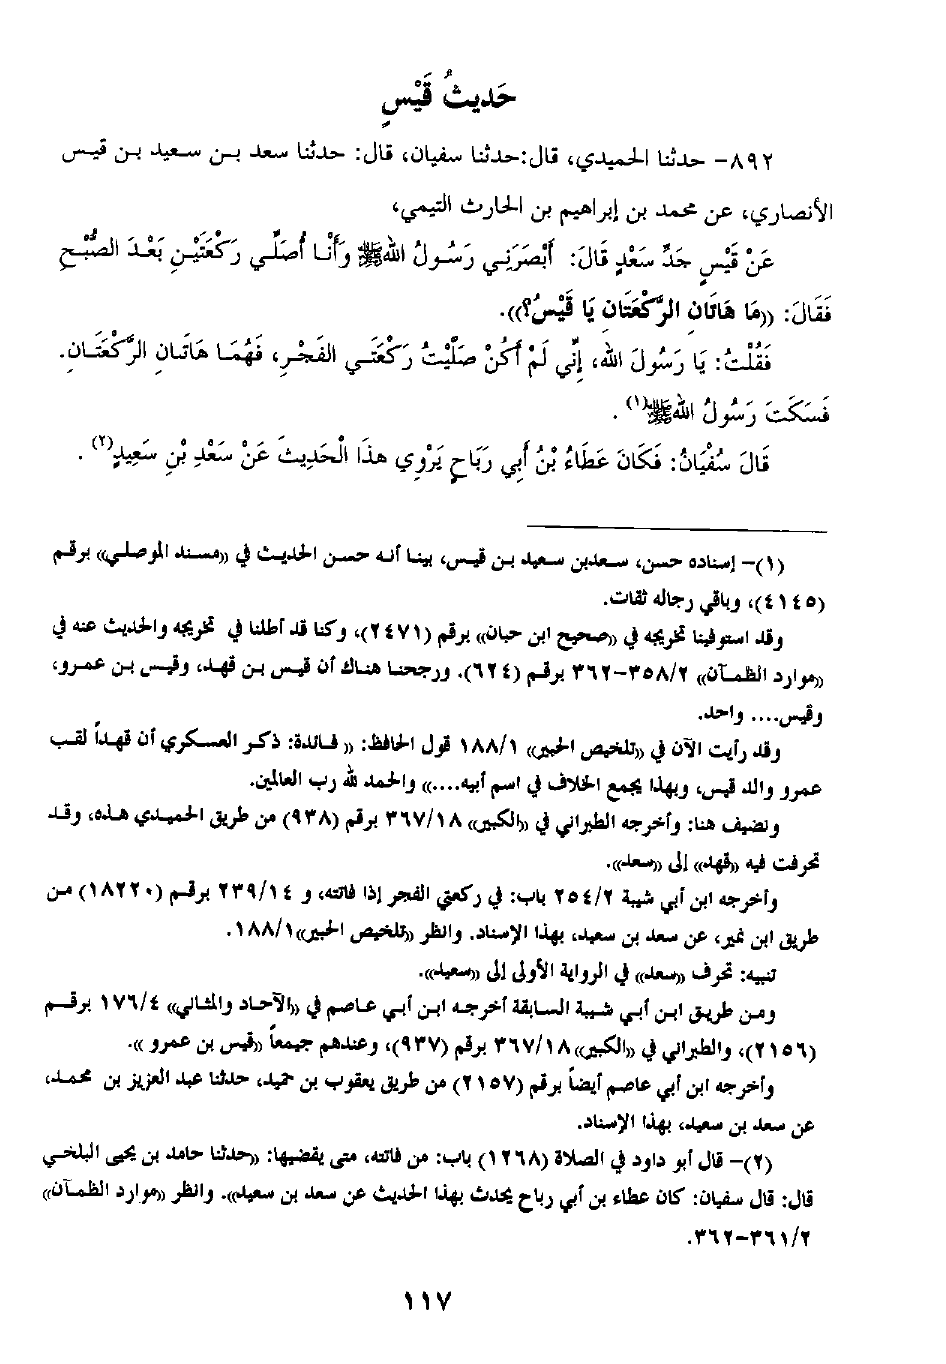 حَديثُ قَيْسٍ
٨٩٢- حدثنا الحميدي، قال:حدثنا سفيان، قال: حدثنا سعد بن سعيد بن قيس
الأنصاري، عن محمد بن إبراهيم بن الحارث التيمي،
عَنْ قَيْسٍ جَدِّ سَعْدٍ قَالَ: أَبْصَرَنِي رَسُولُ اللهِ ﷺ وَأَنَا أُصَلِّي رَكْعَتَيْنِ بَعْدَ الصُّبْحِ
فَقَالَ: ((مَا هَاتَانِ الرَّكْعَتَانِ يَا قَيْسُ؟)).
فَقُلْتُ: يَا رَسُولَ اللهِ، إِنِّي لَمْ أَكُنْ صَلَّيْتُ رَكْعَتَي الفَجْرِ، فَهُمَا هَاتَانِ الرَّكْعَتَانِ.
فَسَكَتَ رَسُولُ اللهِ ﷺ(١) .
قَالَ سُفْيَانُ: فَكَانَ عَطَاءُ بْنُ أَبِي رَبَاحٍ يَرْوِي هذَا الْحَدِيثَ عَنْ سَعْدِ بْنِ سَعِيدٍ(٢) .
(١)- إسناده حسن، سعدبن سعيد بن قيس، بينا أنه حسن الحديث في ((مسند الموصلي)) برقم
(٤١٤٥)، وباقي رجاله ثقات.
وقد استوفينا تخريجه في ((صحيح ابن حبان)) برقم (٢٤٧١)، وكنا قد أطلنا في تخريجه والحديث عنه في
((موارد الظمآن)) ٣٥٨/٢-٣٦٢ برقم (٦٢٤). ورجحنا هناك أن قيس بن قهد، وقيس بن عمرو،
وقيس.... واحد.
وقد رأيت الآن في ((تلخيص الحبير)) ١٨٨/١ قول الحافظ: (( فائدة: ذكر العسكري أن قهداً لقب
عمرو والد قيس، وبهذا يجمع الخلاف في اسم أبيه....)) والحمد لله رب العالمين.
ونضيف هنا: وأخرجه الطبراني في ((الكبير)) ٣٦٧/١٨ برقم (٩٣٨) من طريق الحميدي هذه، وقد
تحرفت فيه ((قهد)) إلى ((سعد)).
وأخرجه ابن أبي شيبة ٢٥٤/٢ باب: في ركعتي الفجر إذا فاتته، و ٢٣٩/١٤ برقم (١٨٢٢٠) من
طريق ابن نمير، عن سعد بن سعيد، بهذا الإسناد. وانظر ((تلخيص الحبير))١٨٨/١.
تنبيه: تحرف ((سعد)) في الرواية الأولى إلى ((سعيد)).
ومن طريق ابن أبي شيبة السابقة أخرجه ابن أبي عاصم في ((الآحاد والمثاني)) ١٧٦/٤ برقم
(٢١٥٦)، والطبراني في ((الكبير))٣٦٧/١٨ برقم (٩٣٧)، وعندهم جميعاً ((قيس بن عمرو )).
وأخرجه ابن أبي عاصم أيضاً برقم (٢١٥٧) من طريق يعقوب بن حميد، حدثنا عبد العزيز بن محمد،
عن سعد بن سعيد، بهذا الإسناد.
(٢)- قال أبو داود في الصلاة (١٢٦٨) باب: من فاتته، متى يقضيها: ((حدثنا حامد بن يحيى البلخي
قال: قال سفيان: كان عطاء بن أبي رباح يحدث بهذا الحديث عن سعد بن سعيد)). وانظر ((موارد الظمآن))
٣٦١/٢-٣٦٢.
١١٧